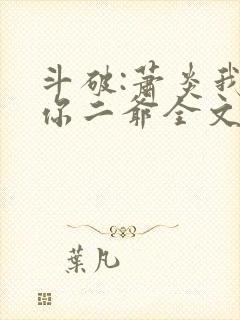 斗破:萧炎我
你二爷全文
葉凡